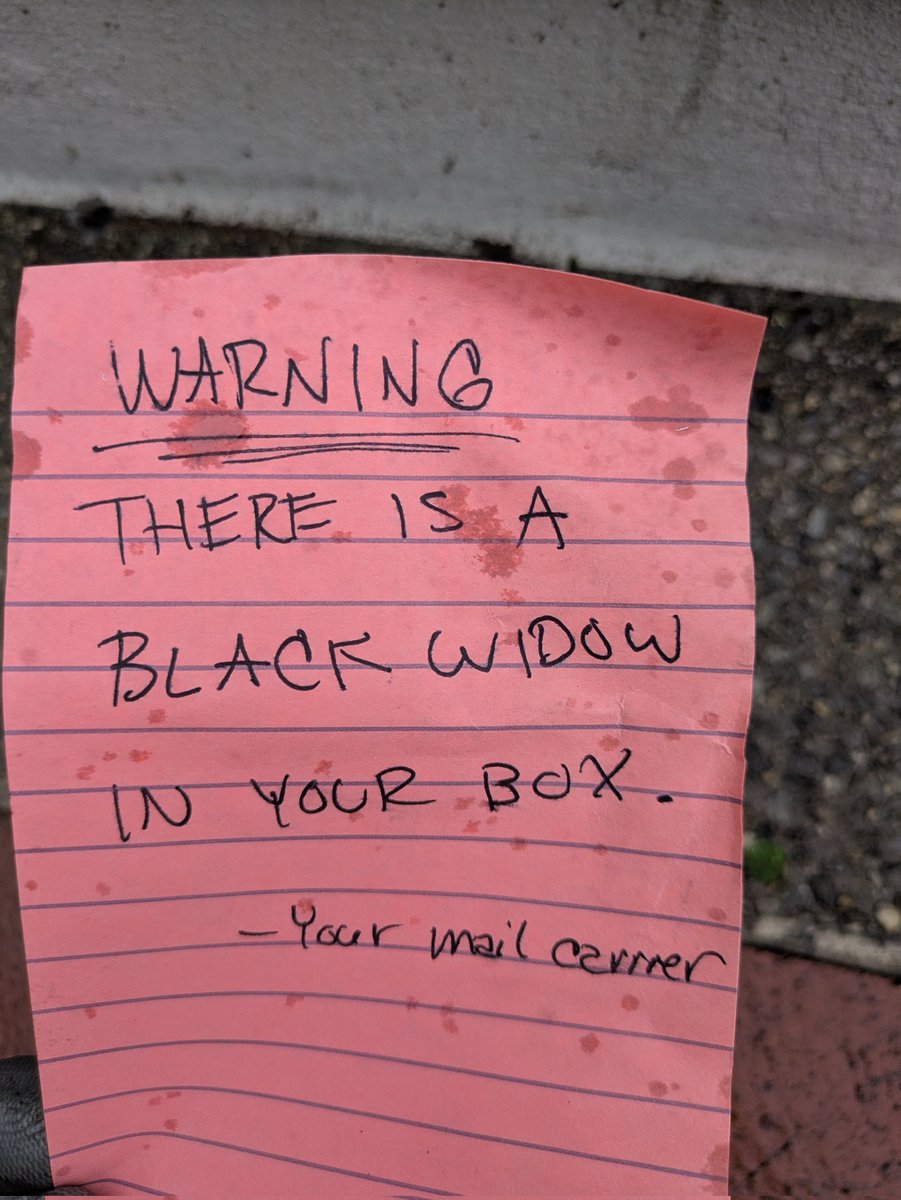 WARNING
THERE IS A
BLACK WIDOW
IN YOUR BOX.
- Your mail carrier